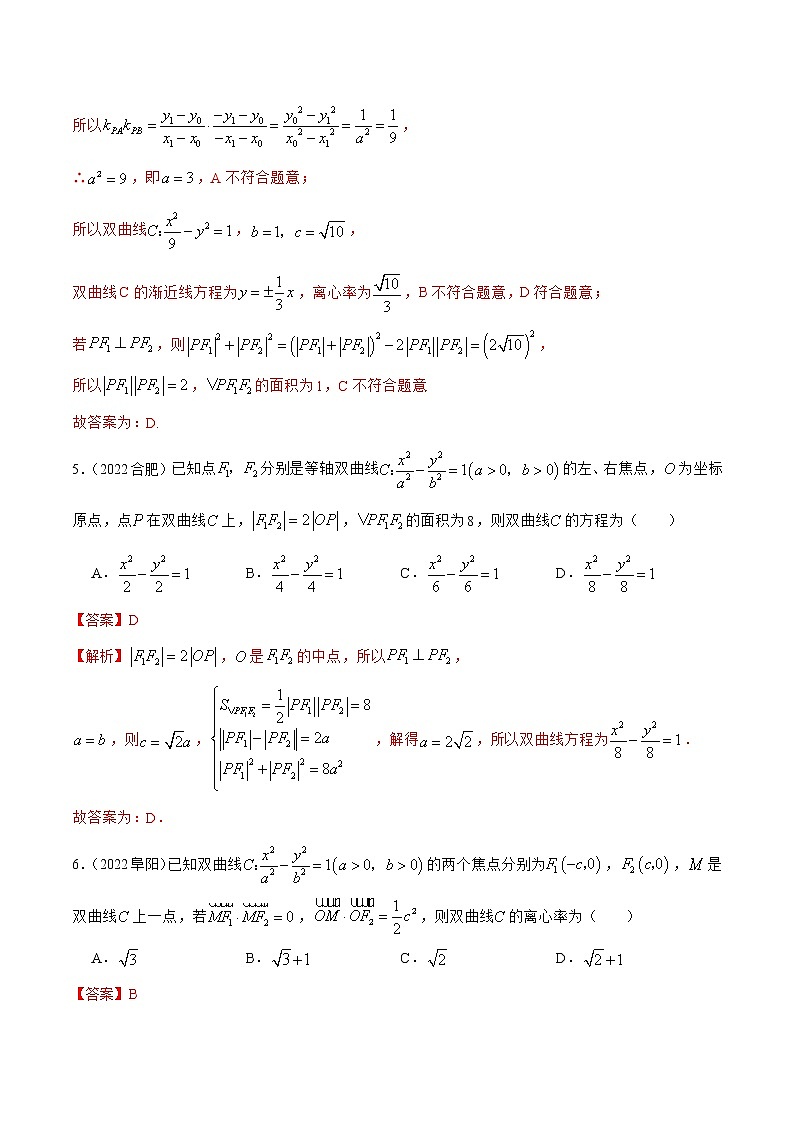 所以 $k_{PA}k_{PB}=\frac{y_1-y_0}{x_1-x_0}\cdot\frac{-y_1-y_0}{-x_1-x_0}=\frac{y_0^2-y_1^2}{x_0^2-x_1^2}=\frac{1}{a^2}=\frac{1}{9}$，
∴$a^2=9$，即$a=3$，A 不符合题意；
所以双曲线$C:\frac{x^2}{9}-y^2=1$，$b=1，c=\sqrt{10}$，
双曲线 C 的渐近线方程为$y=\pm\frac{1}{3}x$，离心率为$\frac{\sqrt{10}}{3}$，B 不符合题意，D 符合题意；
若$PF_1\perp PF_2$，则$|PF_1|^2+|PF_2|^2=(|PF_1|+|PF_2|)^2-2|PF_1||PF_2|=(2\sqrt{10})^2$，
所以$|PF_1||PF_2|=2$，$\vee PF_1F_2$的面积为 1，C 不符合题意.
故答案为：D.
5.（2022 合肥）已知点$F_1，F_2$分别是等轴双曲线$C:\frac{x^2}{a^2}-\frac{y^2}{b^2}=1(a>0，b>0)$的左、右焦点，$O$为坐标
原点，点$P$在双曲线$C$上，$|F_1F_2|=2|OP|$，$\vee PF_1F_2$的面积为 8，则双曲线$C$的方程为（　　）
A．$\frac{x^2}{2}-\frac{y^2}{2}=1$ B．$\frac{x^2}{4}-\frac{y^2}{4}=1$ C．$\frac{x^2}{6}-\frac{y^2}{6}=1$ D．$\frac{x^2}{8}-\frac{y^2}{8}=1$
【答案】D
【解析】$|F_1F_2|=2|OP|$，$O$是$F_1F_2$的中点，所以$PF_1\perp PF_2$，
$a=b$，则$c=\sqrt{2}a$，$\begin{cases}S_{\vee PF_1F_2}=\frac{1}{2}|PF_1||PF_2|=8\\||PF_1|-|PF_2||=2a\\|PF_1|^2+|PF_2|^2=8a^2\end{cases}$，解得$a=2\sqrt{2}$，所以双曲线方程为$\frac{x^2}{8}-\frac{y^2}{8}=1$．
故答案为：D．
6.（2022 阜阳）已知双曲线$C:\frac{x^2}{a^2}-\frac{y^2}{b^2}=1(a>0，b>0)$的两个焦点分别为$F_1(-c,0)$，$F_2(c,0)$，$M$是
双曲线$C$上一点，若$\overrightarrow{MF_1}\cdot\overrightarrow{MF_2}=0$，$\overrightarrow{OM}\cdot\overrightarrow{OF_2}=\frac{1}{2}c^2$，则双曲线$C$的离心率为（　　）
A．$\sqrt{3}$ B．$\sqrt{3}+1$ C．$\sqrt{2}$ D．$\sqrt{2}+1$
【答案】B